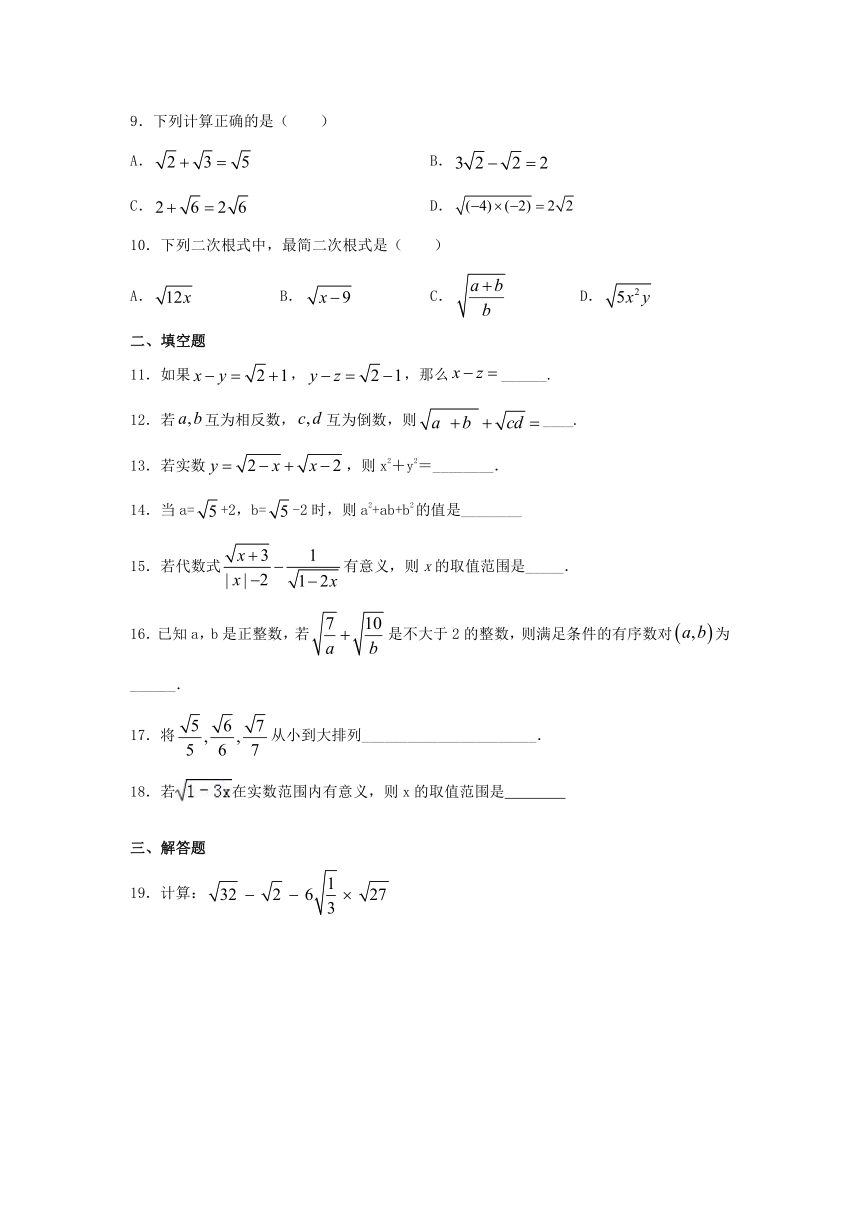 9．下列计算正确的是（　　）
A．√2+√3=√5　　B．3√2−√2=2
C．2+√6=2√6　　D．√((−4)×(−2))=2√2
10．下列二次根式中，最简二次根式是（　　）
A．√(12x)　　B．√(x−9)　　C．√((a+b)/b)　　D．√(5x²y)
二、填空题
11．如果x−y=√2+1，y−z=√2−1，那么x−z=______.
12．若a,b互为相反数，c,d互为倒数，则√(a +b)+√(cd)=____.
13．若实数y=√(2−x)+√(x−2)，则x²＋y²＝________．
14．当a=√5+2，b=√5-2时，则a²+ab+b²的值是________
15．若代数式√(x+3)/(|x|−2)−1/√(1−2x)有意义，则x的取值范围是_____．
16．已知a，b是正整数，若√(7/a)+√(10/b)是不大于2的整数，则满足条件的有序数对(a,b)为
______．
17．将√5/5,√6/6,√7/7从小到大排列_______________________．
18．若√(1−3x)在实数范围内有意义，则x的取值范围是________
三、解答题
19．计算：√32−√2−6√(1/3)×√27